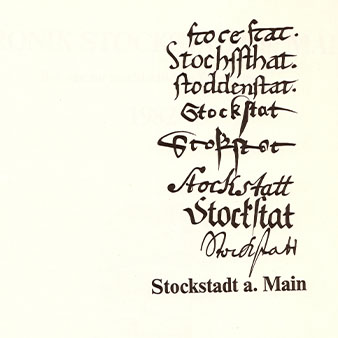 ſtoceſtat.
Stochſſthat.
ſtoddenſtat.
Stockſtat
Stokſtot
Stockſtatt
Stockſtat
Stockſtatt
Stockstadt a. Main